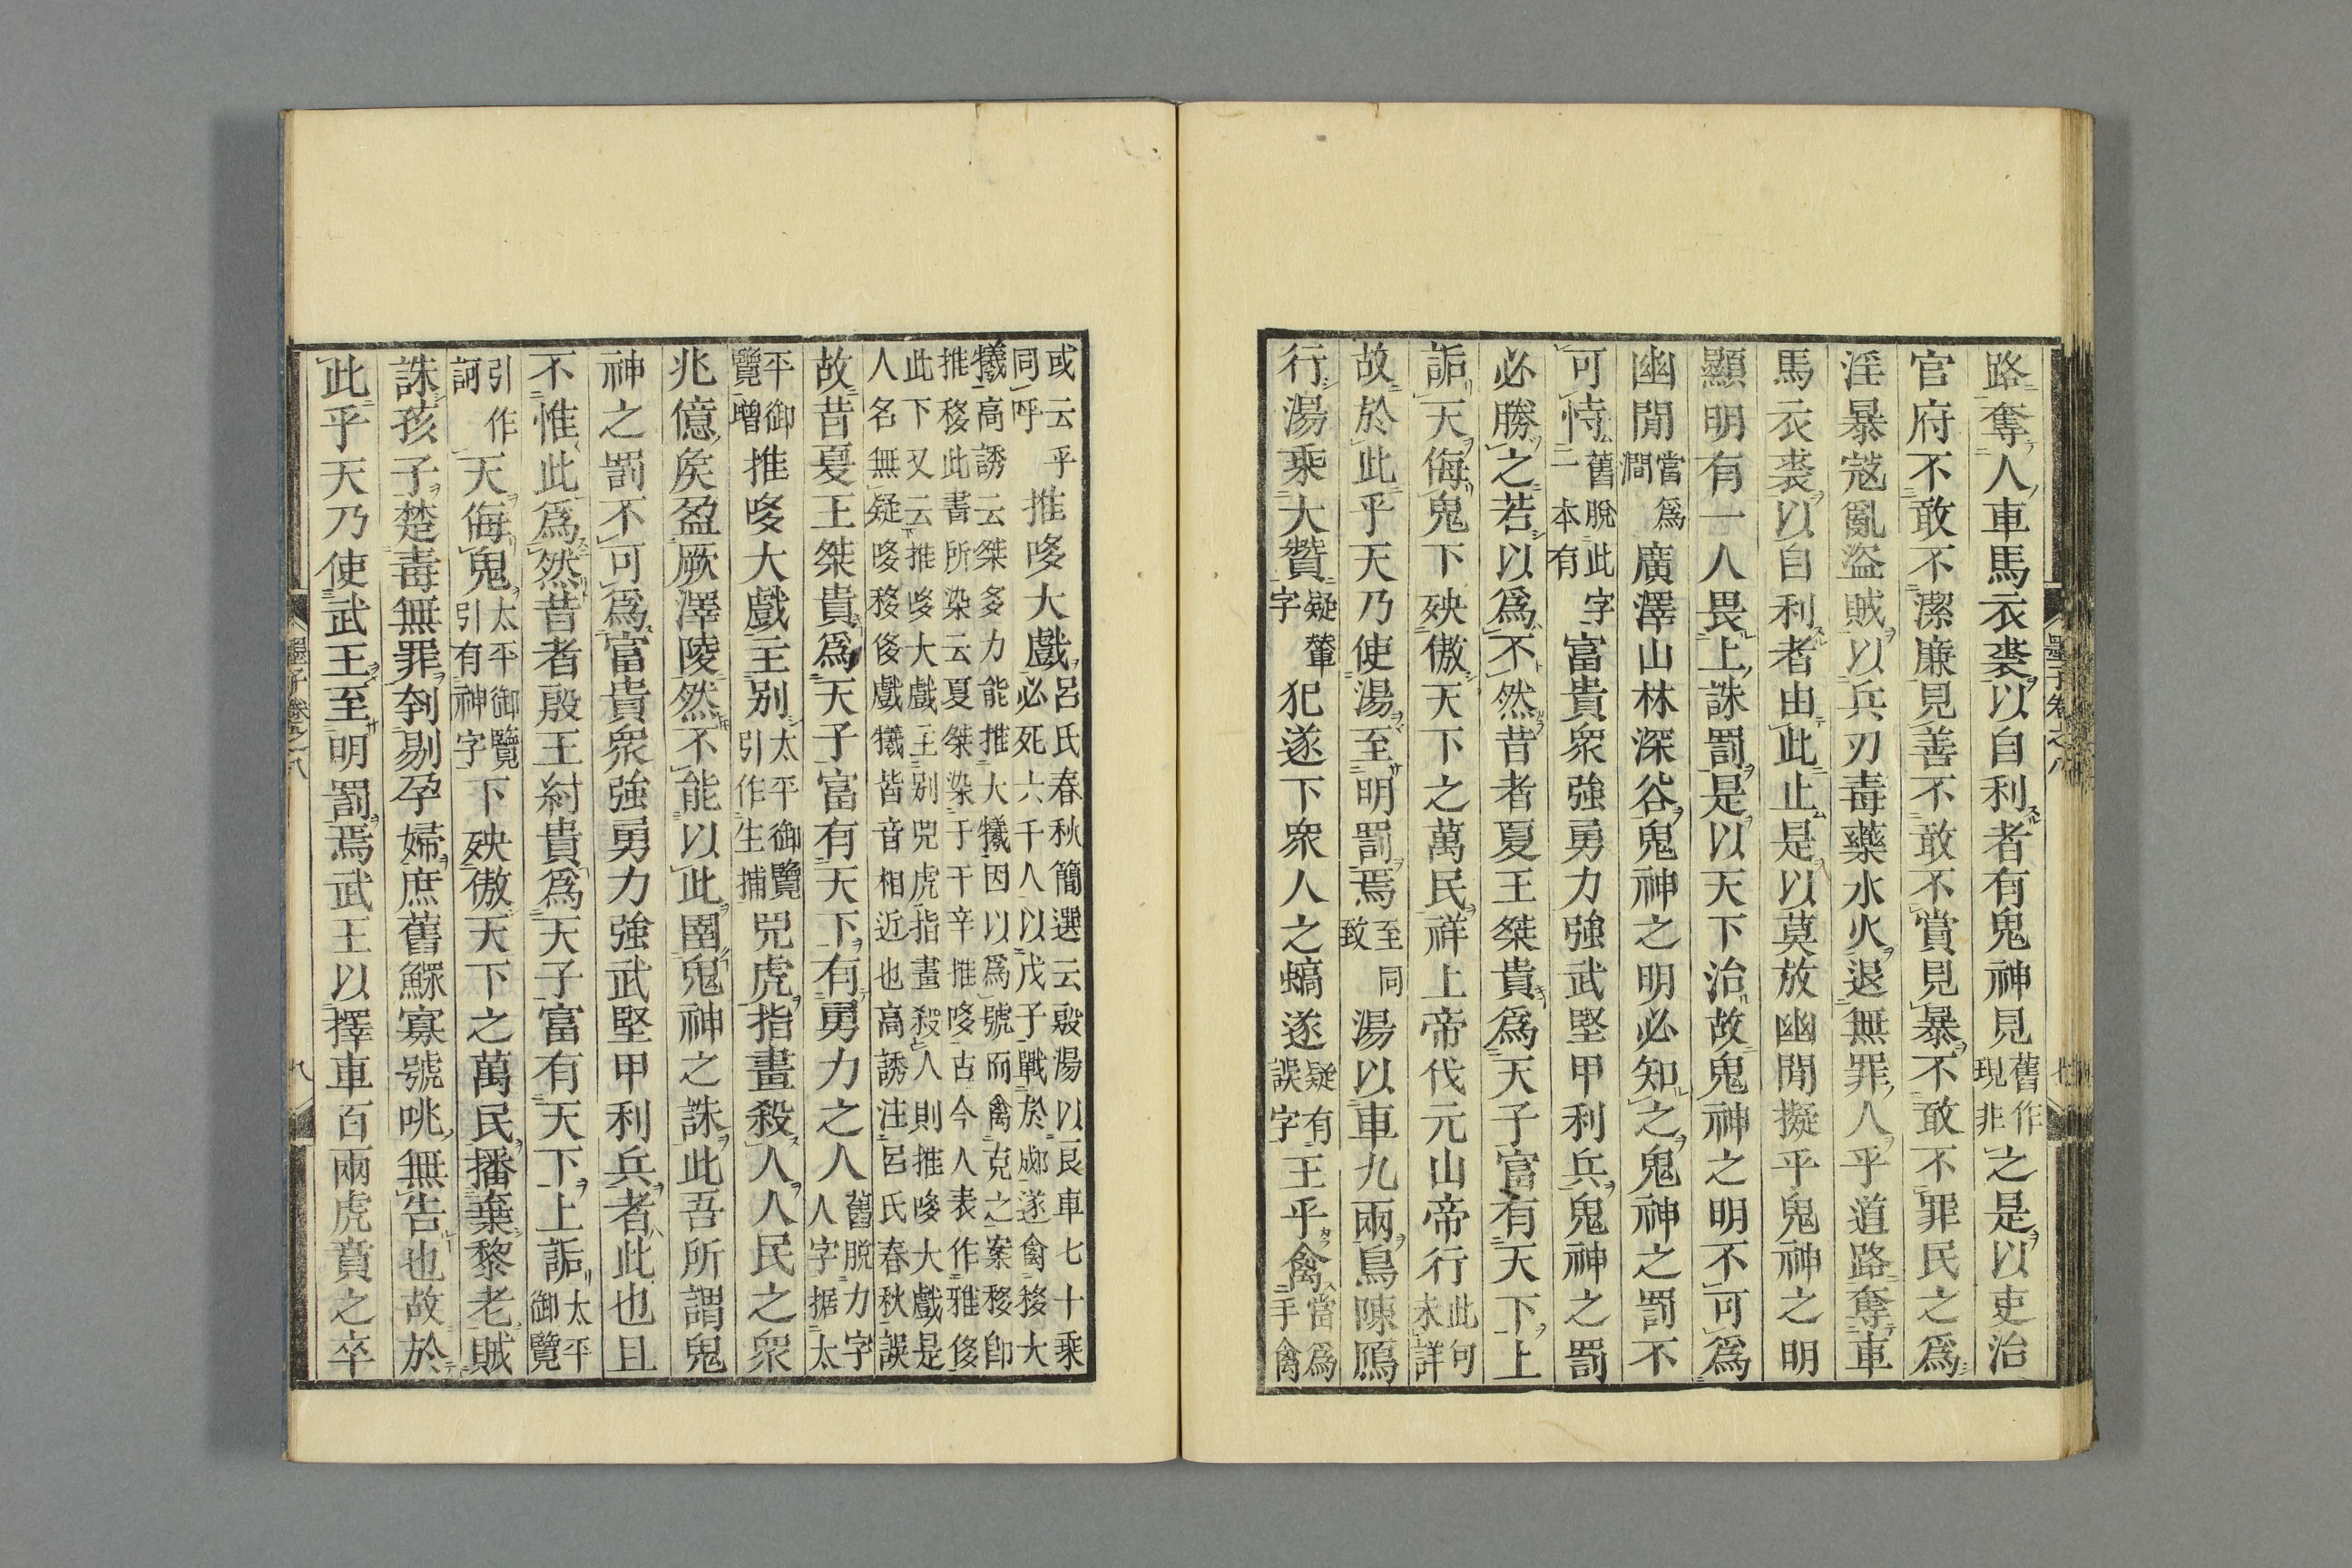 路奪人車馬衣裘以自利者有鬼神見舊作現非之是以吏治
官府不敢不潔廉見善不敢不賞見暴不敢不罪民之為
淫暴寇亂盜賊以兵刃毒藥水火退無罪人乎道路奪車
馬衣裘以自利者由此止是以莫放幽閒擬乎鬼神之明
顯明有一人畏上誅罰是以天下治故鬼神之明不可爲
幽閒當爲澗廣澤山林深谷鬼神之明必知之鬼神之罰不
可恃舊脫此字一本有富貴眾強勇力強武堅甲利兵鬼神之罰
必勝之若以爲不然昔者夏王桀貴爲天子富有天下上
詬天侮鬼下殃傲天下之萬民祥上帝伐元山帝行此句未詳
故於此乎天乃使湯至明罰焉至同致湯以車九兩鳥陳鴈
行湯乘大贊疑輦字犯遂下眾人之蟜遂疑有誤字王乎禽當爲手禽
墨子卷之八 七
或云乎同呼推哆大戲呂氏春秋簡選云殷湯以良車七十乘必死六千人以戊子戰於郕遂禽推移大
犧高誘云桀多力能推大犧因以爲號而禽克之案移卽推移此書所染云夏桀染于干辛推哆古今人表作雅侈
此下又云推哆大戲王別兕虎指畫殺人則推哆大戲是人名無疑哆移侈戲犧皆音相近也高誘注呂氏春秋誤
故昔夏王桀貴爲天子富有天下有勇力之人舊脫力字人字据太
平御覽增推哆大戲主別太平御覽引作生捕兕虎指畫殺人人民之眾
兆億矣盈厥澤陵然不能以此圉鬼神之誅此吾所謂鬼
神之罰不可爲富貴眾強勇力強武堅甲利兵者此也且
不惟此爲然昔者殷王紂貴爲天子富有天下上詬太平御覽
引作訶天侮鬼太平御覽引有神字下殃傲天下之萬民播棄黎老賊
誅孩子楚毒無罪刳剔孕婦庶舊鰥寡號咷無告也故於
此乎天乃使武王至明罰焉武王以擇車百兩虎賁之卒
墨子卷之八 八